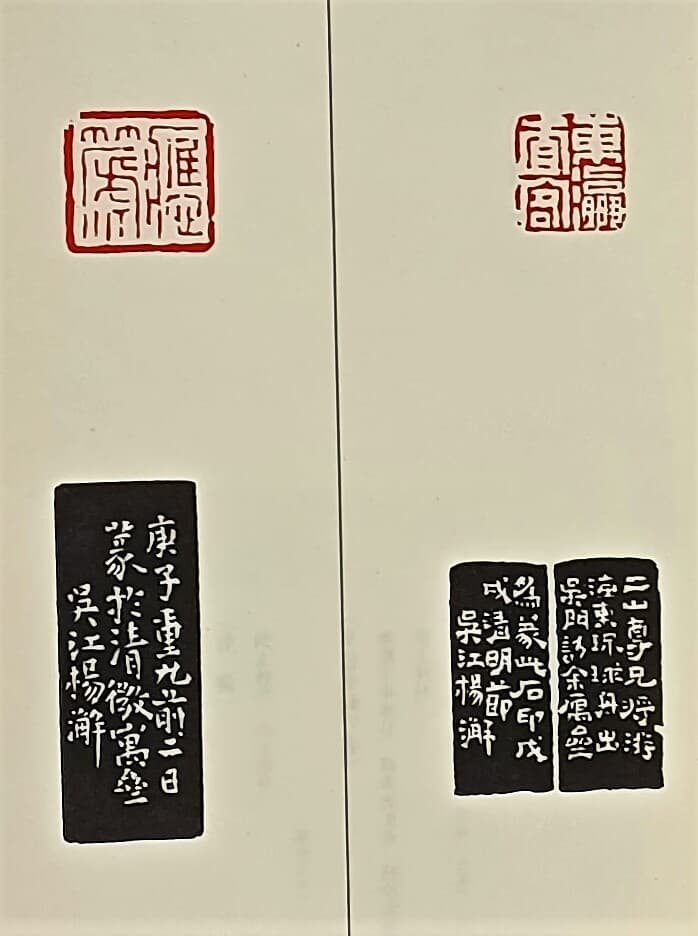 東瀛
客
二山尊兄將游
海東琉球舟出
吳門訪余寓壘
為篆此石印戊
戌清明節
吳江楊澥
庚子重九前二日
篆於清微寓壘
吳江楊澥